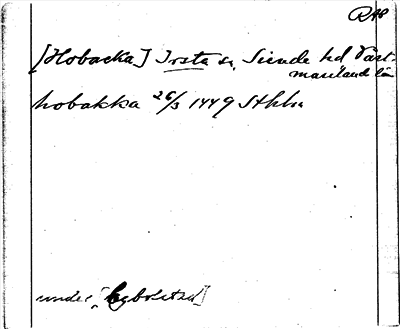 RAp
[Hobacka] Irsta sn, Siende hd Väst-
manland län
hobakka 26/3 1449 Sthlm
under [bebotsed]